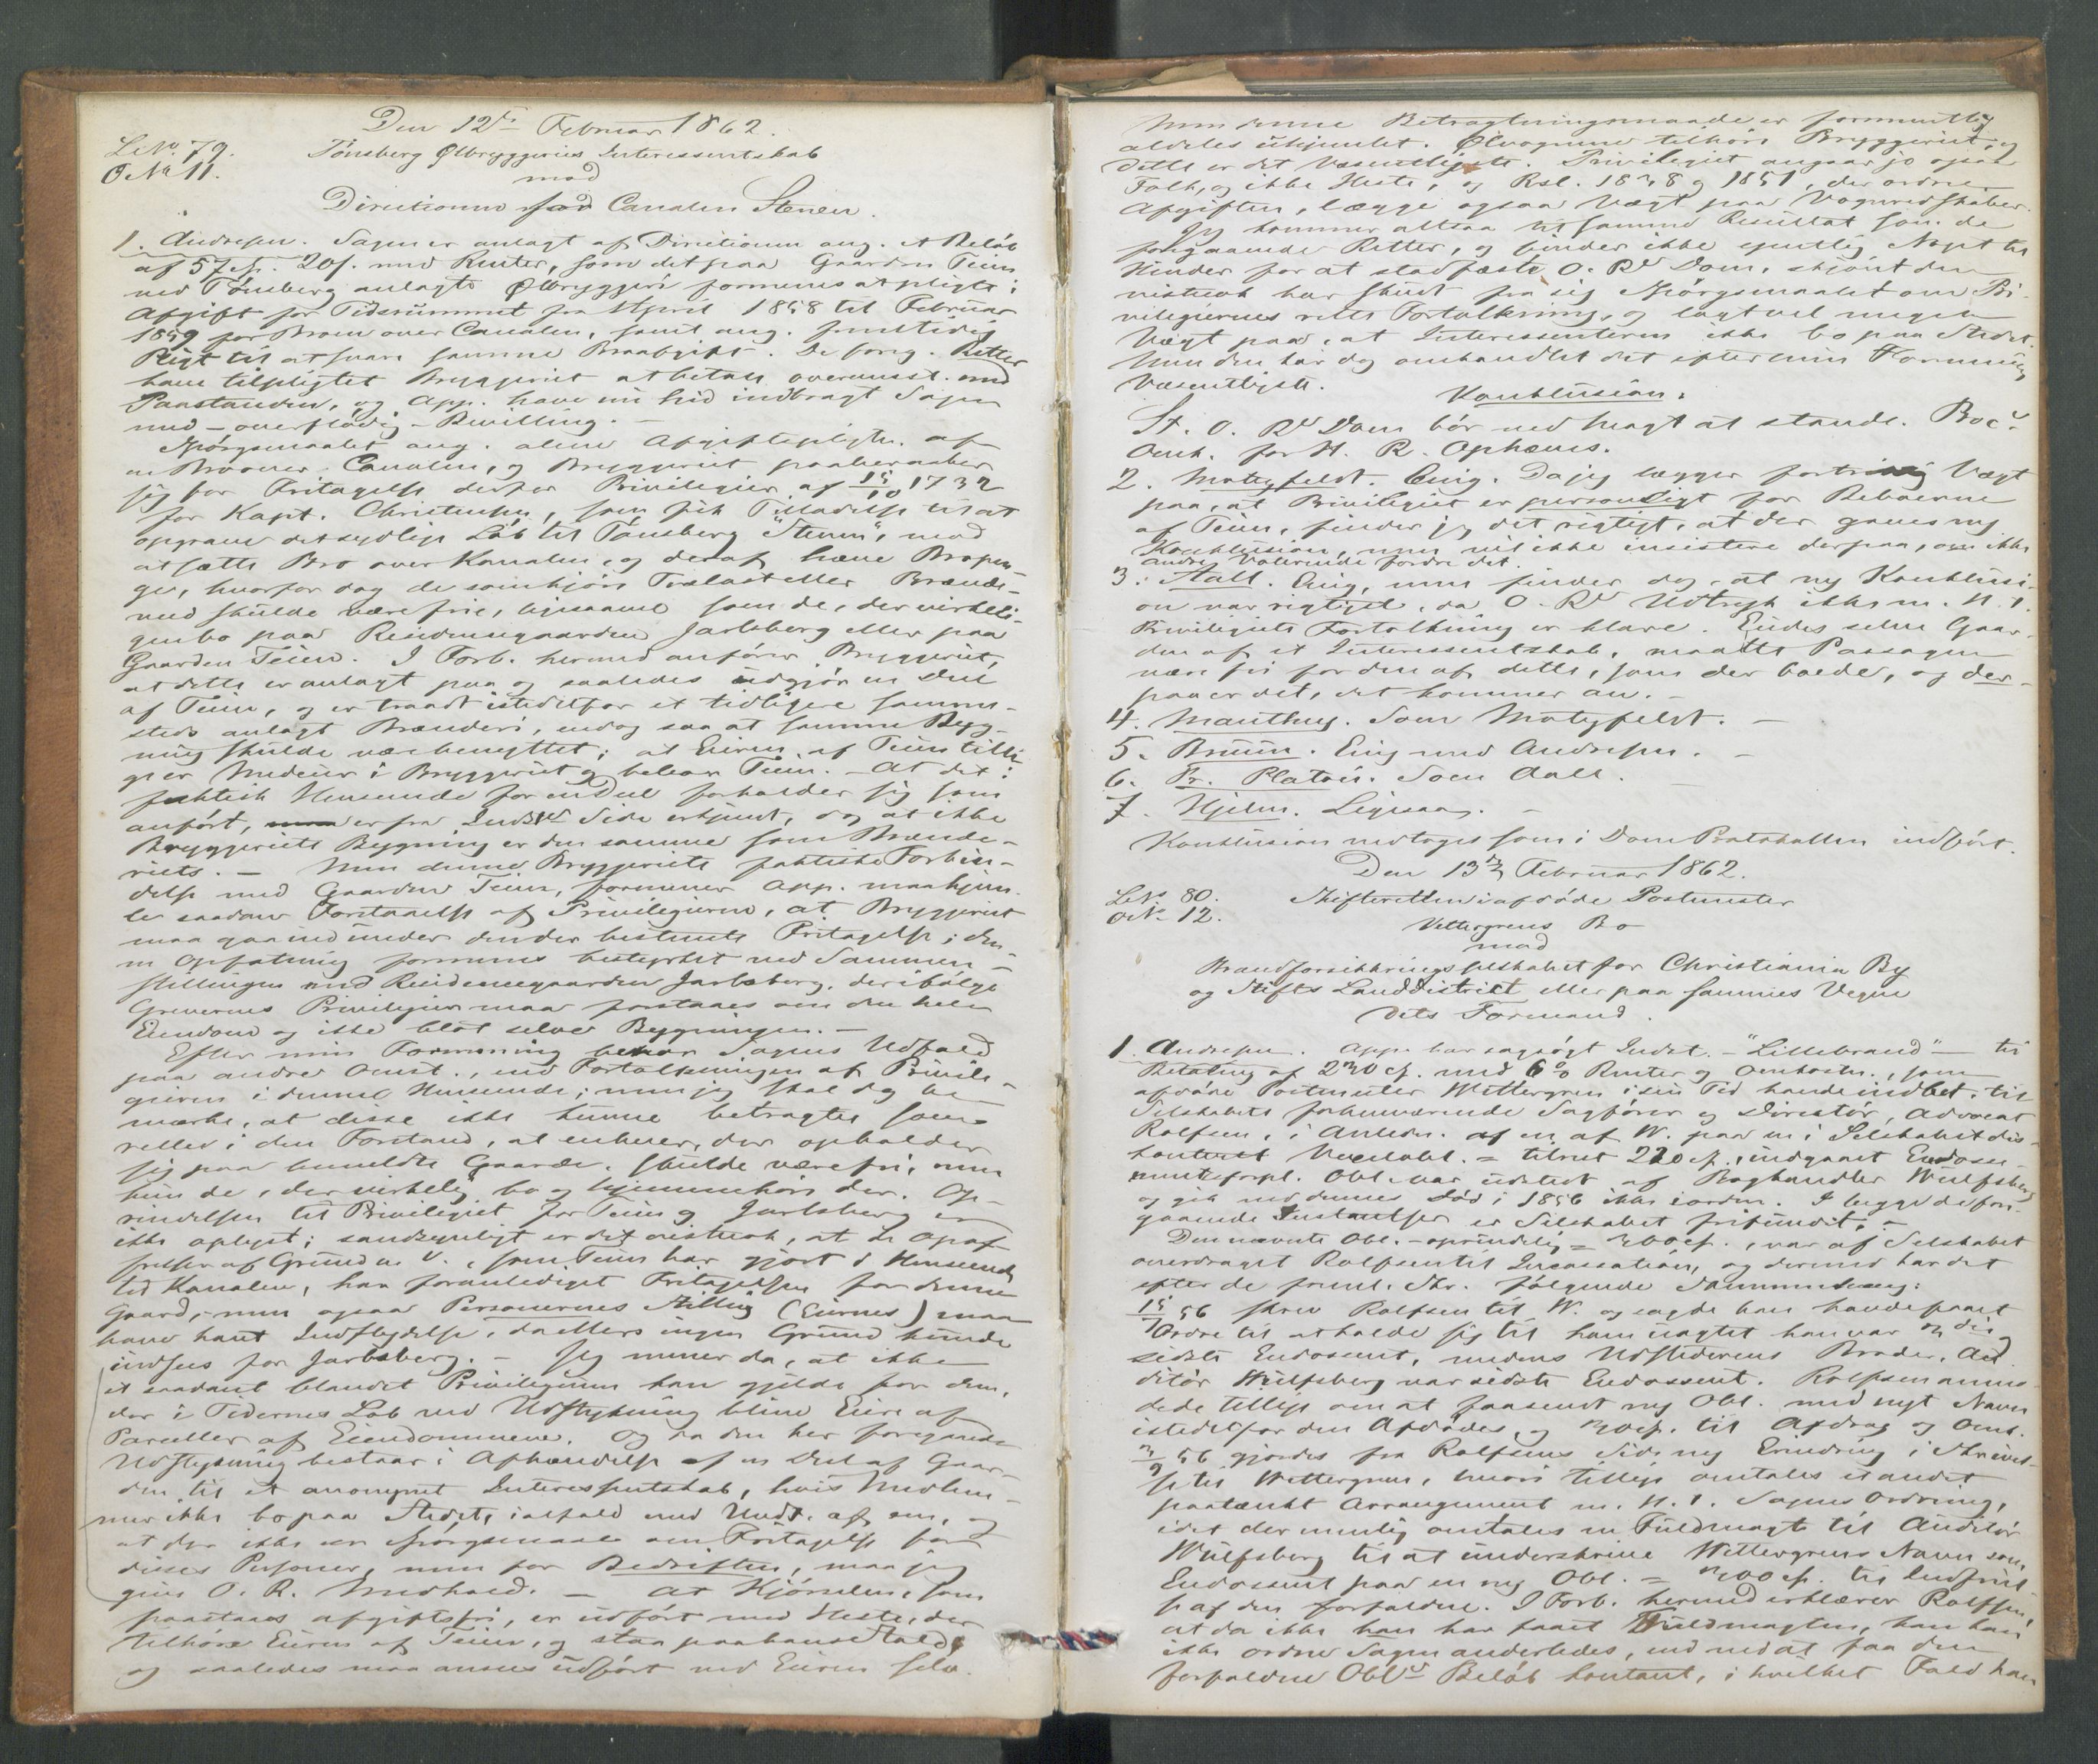 Den 12te Februar 1862.
L. No. 79. Tönsberg Ølbryggeries Interessentskab
O. No 11. mod
Directionen for Canalen Stenen.
1. Andresen. Sagen er anlagt af Directionen ang. et Beløb
af 57 Sp. 20 s. med Renter, som det paa Gaarden Teien
ved Tönsberg anlagte Ølbryggeri formenes at pligte i
Afgift for Tidsrummet fra April 1858 til Februar
1859 for Broen over Canalen, samt ang. fremtidig
Pligt til at svare samme Broafgift. De foreg. Retter
have tilpligtet Bryggeriet at betale overensst. med
Paastanden, og App. have nu hid indbragt Sagen
med – overflødig – Bevilling. –
Spörgsmaalet ang. alene Afgiftspligten af
en Bro over Canalen, og Bryggeriet paaberaaber
sig for Fritagelse derfor Privilegier af 15/10 1732
for Kapt. Christensen, som fik Tilladelse til at
opgrave det sydlige Löb til Tönsberg "Stenen", mod
at sætte Bro over Kanalen, og deraf hæve Bropen-
ge, hvorfor dog de som kjöre Trælast eller Brænde-
ved skulde være frie, ligesaavel som de, der virkeli-
gen bo paa Residensgaarden Jarlsberg eller paa
Gaarden Teien. I Forb. hermed anförer Bryggeriet,
at dette er anlagt paa og saaledes udgjör en Deel
af Teien, og er traadt istedetfor et tidligere samme-
steds anlagt Brænderi, endog saa at samme Byg-
ning skulde være benyttet; at Eieren af Teien tilli-
ge er Medeier i Bryggeriet og beboer Teien. – At det i
faktisk Henseende for en Deel forholder sig som
anfört, er fra Indst. Side erkjendt, dog at ikke
Bryggeriets Bygning er den samme som Brænde-
riets. – Men denne Bryggeriets faktiske Forbin-
delse med Gaarden Teien, formener App. maa hjem-
le saadan Forstaaelse af Privilegierne, at Bryggeriet
maa gaa ind under den der bestemte Fritagelse; den-
ne Opfatning formenes bestyrket ved Sammen-
stillingen med Residensegaarden Jarlsberg, der ifølge
Grevernes Privilegier maa forstaaes om den hele
Eiendom og ikke blot selve Bygningen. –
Efter min Formening beror Sagens Udfald
paa andre Omst., end Fortolkningen af Privile-
gierne i denne Henseende; men jeg skal dog be-
mærke, at disse ikke kunne betragtes som
reelle i den Forstand, at enhver, der opholder
sig paa bemeldte Gaarde, skulde være fri, men
kun de, der virkelig bo og hjemmehöre der. Op-
rindelsen til Privilegiet for Teien og Jarlsberg er
ikke oplyst; sandsynligt er det vistnok, at de Opof-
frelser af Grund m. V., som Teien har gjort i Henseende
til Kanalen, har foranlediget Fritagelsen for denne
Gaard, – men ogsaa Personernes Stilling (Eiernes) maa
have havt Indflydelse, da ellers ingen Grund kunde
indsees for Jarlsberg. – Jeg mener da, at ikke
et saadant blandet Privilegium kan gjelde for dem,
der i Tidernes Löb ved Udstykning blive Eiere af
Parceller af Eiendommene. Og da den her foregaaede
Udstykning bestaar i Afhændelse af en Del af Gaar-
den til et anonymt Interessentskab, hvis Medlem-
mer ikke bo paa Stedet, ialfald med Undt. af en, og
at der ikke er Spörgsmaal om Fritagelse for
disses Personer, men for Bedriften, maa jeg
give O. R. Medhold. – At Kjörselen, som
paastaaes afgiftsfri, er udfört med Heste, der
tilhöre Eieren af Teien, og staa paa hans Stald,
og saaledes maa ansees udfört ved Eieren selv.
Men denne Betragtningsmaade er formentlig
aldeles uhjemlet. Ølvognene tilhöre Bryggeriet, og
dette er det Væsentligste. Privilegiet angaar jo ogsaa
Folk, og ikke Heste, og Rsl. 1848 og 1851, der ordne
Afgiften, lægge ogsaa Vægt paa Vognredskaber.
Jeg kommer altsaa til samme Resultat som de
foregaaende Retter, og finder ikke egentlig Noget til
Hinder for at stadfæste O. Rs Dom, skjönt den
vistnok har skudt fra sig Spörgsmaalet om Pri-
vilegiernes rette Fortolkning, og lagt vel megen
Vægt paa, at Interessenterne ikke bo paa Stedet.
Men den har dog omhandlet det efter min Formening
Væsentligste.
Konklusion:
St. O. Rs Dom bör ved Magt at stande. Proc.
Omk. for H. R. ophæves.
2. Motzfeldt. Enig. Da jeg lægger fortrinlig Vægt
paa, at Privilegiet er personligt for Beboerne
af Teien, finder jeg det rigtigt, at der gaves ny
Konklusion, men vil ikke insistere derpaa, om ikke
andre Voterende fordre det.
3. Aall. Enig, men finder dog, at ny Konklusi-
on var rigtigst, da O. Rs Udtryk ikke m. H. t.
Privilegiets Fortolkning er klare. Eiedes selve Gaar-
den af et Interessentskab, maatte Passagen
være fri for dem af dette, som der boede, og der-
paa er det, det kommer an. –
4. Manthey. Som Motzfeldt. –
5. Bruun. Enig med Andresen. –
6. Fr. Platou. Som Aall. –
7. Hjelm. Ligesaa. –
Konklusion vedtoges som i Dom Protokollen indfört.
Den 13de Februar 1862.
L. No 80. Skifteretten i afdöde Postmester
O. No 12. Vettergrens Bo
mod
Brandforsikkringsselskabet for Christiania By
og Stifts Landdistrikt eller paa sammes Vegne
dets Formand.
1. Andresen. App. har sagsögt Indst. – "Lillebrand" – til
Betaling af 230 Sp. med 6% Renter og Omkostn., som
afdöde Postmester Wettergren i sin Tid havde indbet. til
Selskabets forhenværende Sagförer og Direktör, Advocat
Rolfsen, i Anledn. af en af W. paa en i Selskabet dis-
konteret Vexelobl. = tilrest 220 Sp., indgaaet Endosse-
mentsforpl. Obl. var udstedt af Boghandler Wulfsberg
og gik ved dennes Död i 1856 ikke i orden. I begge de fore-
gaaende Instantser er Selskabet frifundet. –
Den nævnte Obl. – oprindelig = 300 Sp., var af Selskabet
overdraget Rolfsen til Incassation, og dermed har det
efter de freml. Skr. fölgende Sammenhæng:
skrev Rolfsen til W. og sagde han havde faaet
Ordre til at holde sig til ham uagtet han var
sidste Endossent, medens Udstederens Broder, Au-
ditör Wulfsberg var sidste Endossent. Rolfsen anmo-
dede tillige om at faa sendt ny Obl. med nyt Navn
istedetfor den Afdödes, og til Afdrag og Omk.
gjordes fra Rolfsens Side ny Erindring i Skrivel-
se til Wettergren, hvori tillige omtales et andet
paatænkt Arrangement m. H. t. Sagens Ordning,
idet der nemlig omtales en Fuldmagt til Auditör
Wulfsberg til at underskrive Wettergrens Navn som
Endossent paa en ny Obl. = 200 Sp. til Indfriel-
se af den forfaldne. I Forb. hermed erklærer Rolfsen,
at da ikke han har faaet Fuldmagten, kan han
ikke ordne Sagen anderledes, end ved at faa den
forfaldne Obls Belöb kontant, i hvilket Fald han